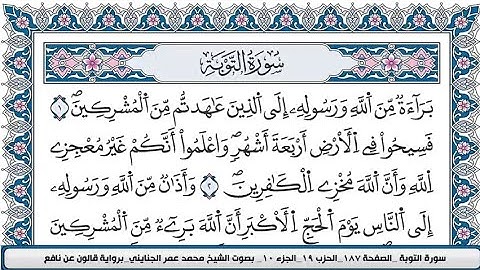 سُورَةُ التَّوْبَةِ
بَرَآءَةٌ مِّنَ اللَّهِ وَرَسُولِهِۦٓ إِلَى الَّذِينَ عَٰهَدتُّم مِّنَ الْمُشْرِكِينَ ١
فَسِيحُوا۟ فِى الْأَرْضِ أَرْبَعَةَ أَشْهُرٍ وَاعْلَمُوٓا۟ أَنَّكُمْ غَيْرُ مُعْجِزِى
اللَّهِ وَأَنَّ اللَّهَ مُخْزِى الْكَٰفِرِينَ ٢ وَأَذَٰنٌ مِّنَ اللَّهِ وَرَسُولِهِۦٓ
إِلَى النَّاسِ يَوْمَ الْحَجِّ الْأَكْبَرِ أَنَّ اللَّهَ بَرِىٓءٌ مِّنَ الْمُشْرِكِينَ
سورة التوبة _الصفحة ١٨٧_ الحزب ١٩_ الجزء ١٠_ بصوت الشيخ محمد عمر الجنايني_ برواية قالون عن نافع